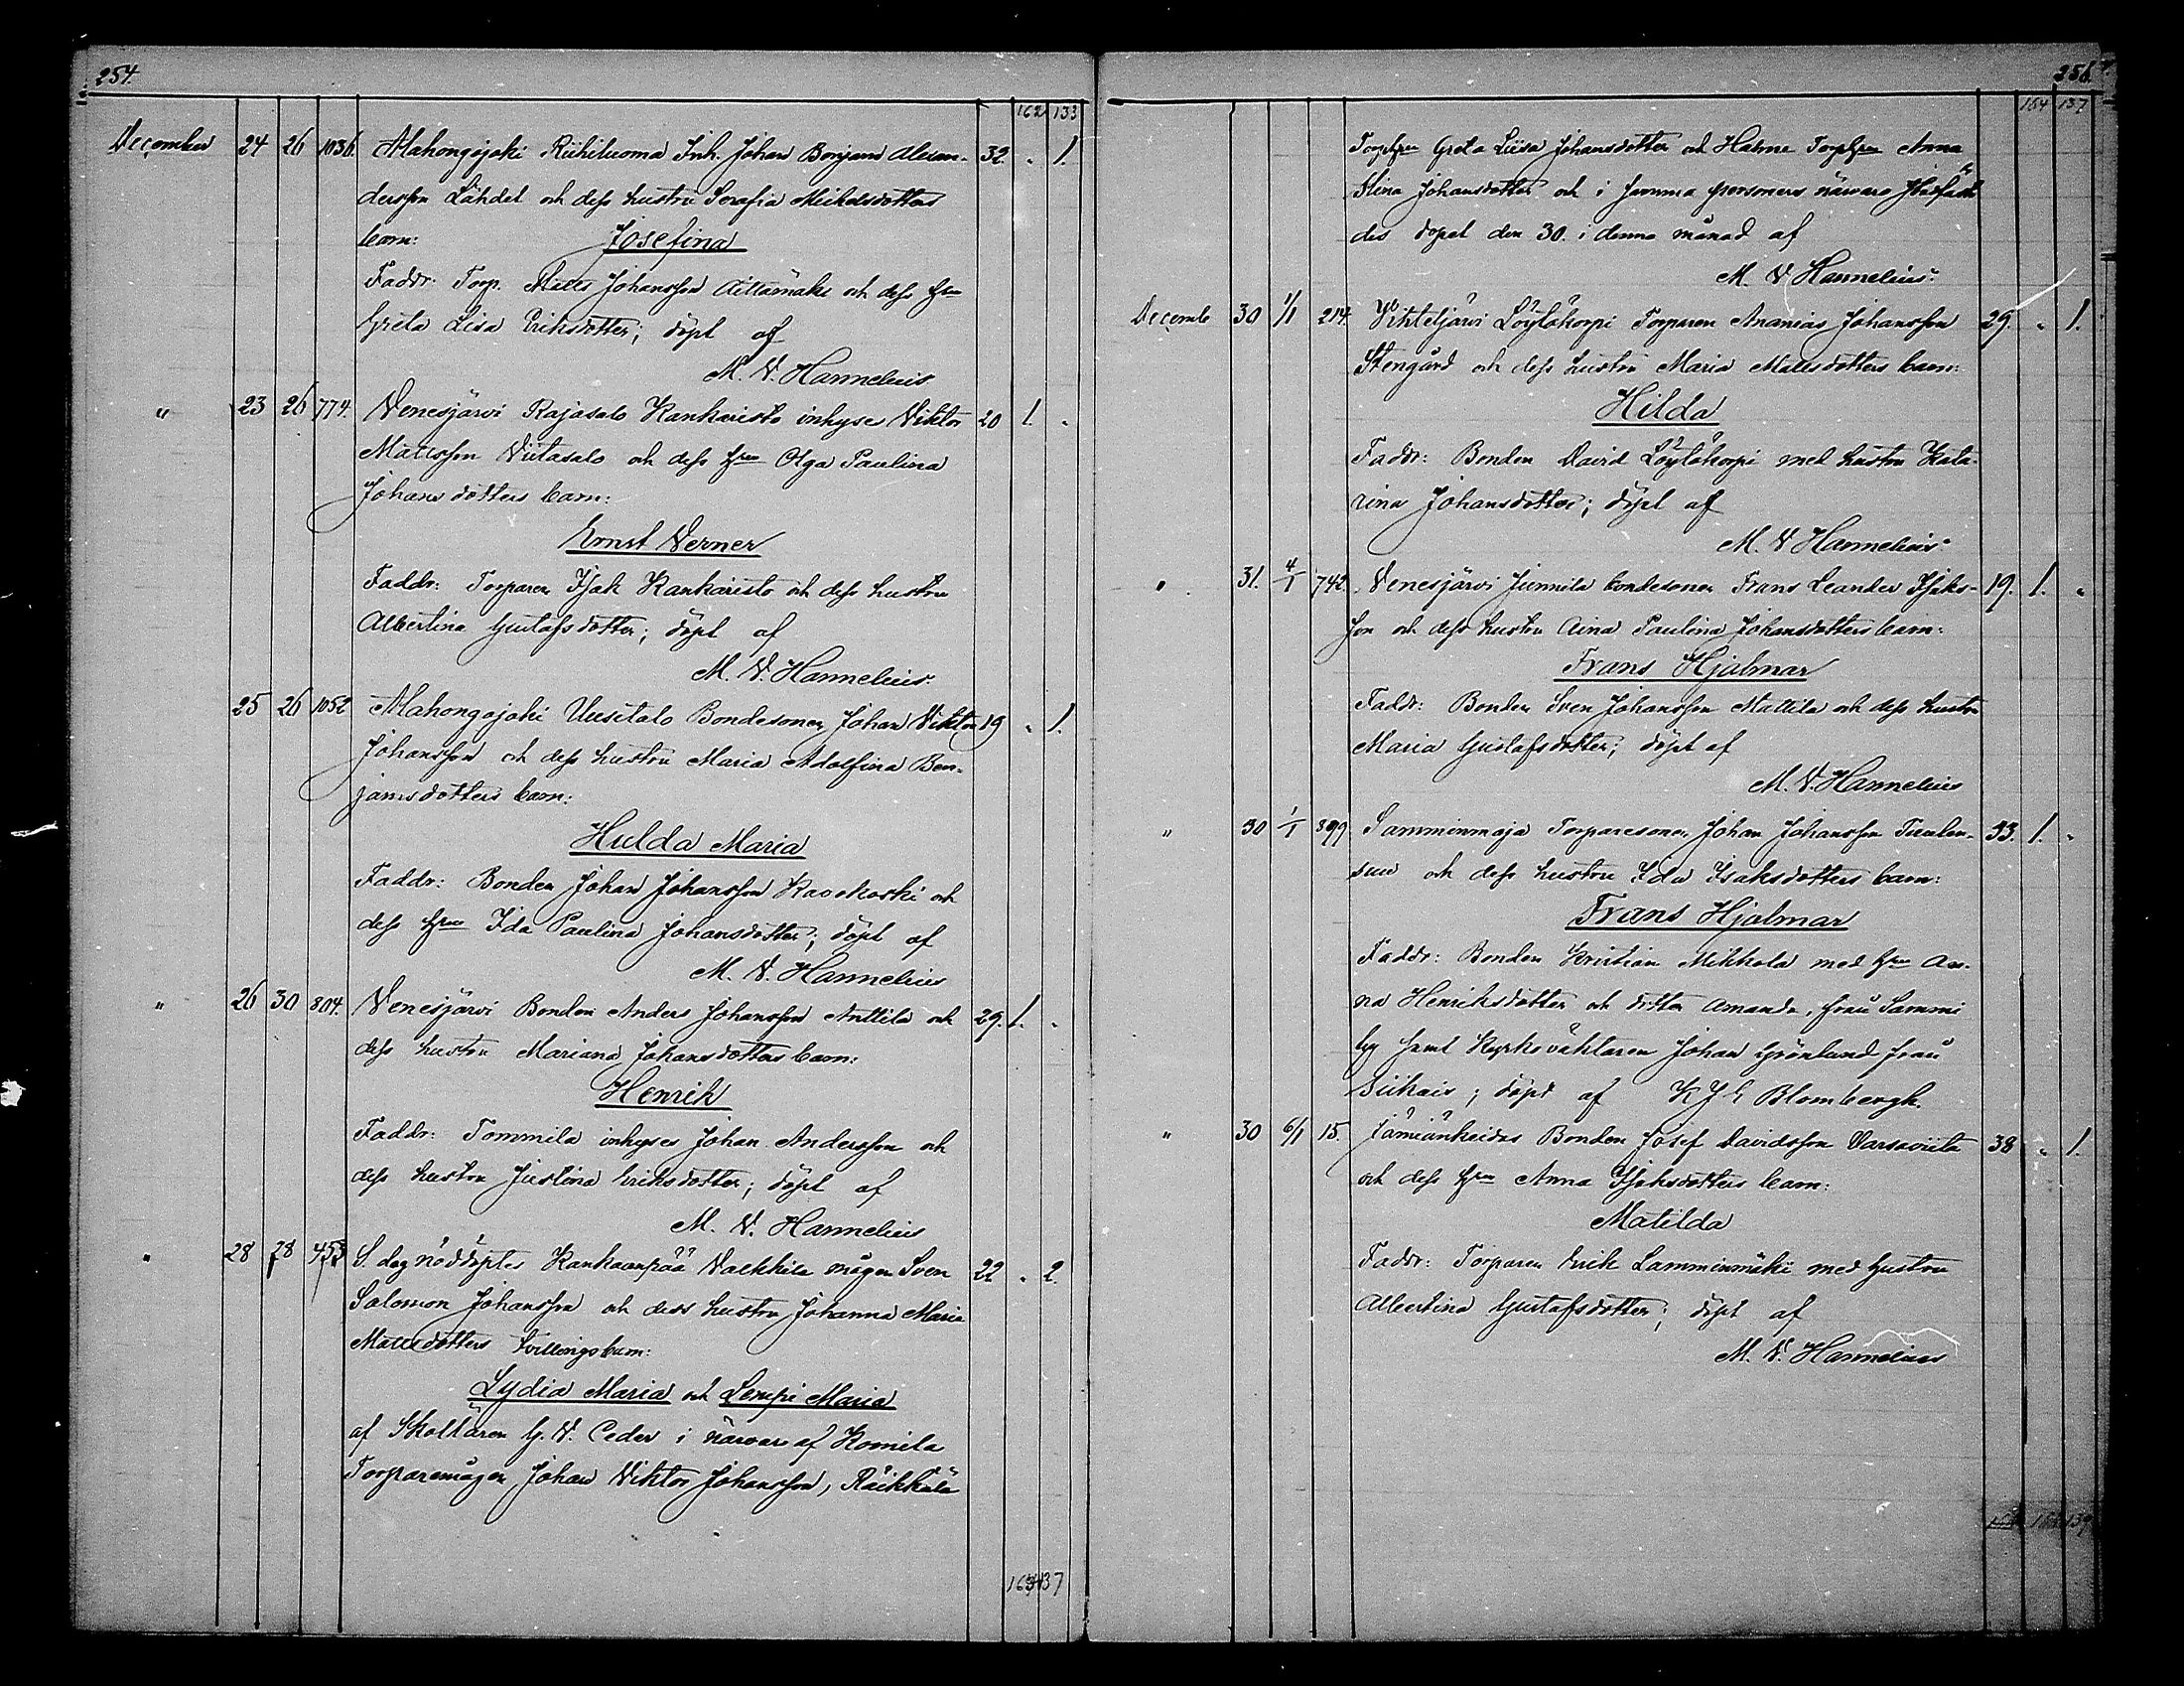 254.
162 133
December 24 26 1036. Mahongojoki Riihiluoma Inh. Johan Benjam Alexan- 32. " 1.
dersson Lähdet och dess hustru Serafia Mickelsdotters
barn: Josefina
Faddr: Torp. Matts Johansson Aittamäki och dess hru
Greta Lisa Eriksdotter; döpt af
M. V. Hannelius
" 23 26 774. Venesjärvi Rajasalo Kankaristo inhyses Viktor 20 1. "
Mattsson Viitasalo och dess hru Olga Paulina
Johansdotters barn:
Ernst Verner
Faddr: Torparen Isak Kankaristo och dess hustru
Albertina Gustafsdotter; döpt af
M. V. Hannelius.
25 26 1052 Mahongojoki Uusitalo Bondesonen Johan Viktor 19 " 1.
Johansson och dess hustru Maria Adolfina Ben-
jamsdotters barn:
Hulda Maria
Faddr: Bonden Johan Johansson och
dess hru Ida Paulina Johansdotter; döpt af
M. V. Hannelius
" 26 30 804. Venesjärvi Bonden Anders Johansson Anttila och 29. 1. "
dess hustru Mariana Johansdotters barn:
Henrik
Faddr: Tommila inhyses Johan Andersson och
dess hustru Justina Eriksdotter; döpt af
M. V. Hannelius
" 28 28 453 S. dag nöddöptes Kankaanpää mågen Sven 22 " 2.
Salomon Johansson och dess hustru Johanna Maria
Mattsdotters tvillingsbarn:
Lydia Maria och Lempi Maria
af Skolläraren G. V. Ceder i närvaro af Komila
Torparemågen Johan Viktor Johansson, Räikkälä
137
256.
164 137
Torphru Greta Liisa Johansdotter och Halme Torphru Anna
Stina Johansdotter och i samma personers närvaro
des dopet den 30. i denna månad af
M. V. Hannelius.
Decemb 30 1/1 214. Vihteljärvi Löylökorpi Torparen Ananias Johansson 29. " 1.
Stengård och dess hustru Maria Mattsdotters barn:
Hilda
Faddr: Bonden David Löylökorpi med hustru Kata-
rina Johansdotter; döpt af
M. V. Hannelius.
" 31. 4/1 742. Venesjärvi Junnila bondesonen Frans Leander Isaks- 19. 1. "
son och dess hustru Aina Paulina Johansdotters barn:
Frans Hjalmar
Faddr: Bonden Sven Johansson Mattila och dess hustru
Maria Gustafsdotter; döpt af
M. V. Hannelius
" 30 1/1 399 Samminmaja Torparesonen Johan Johansson Tuulen- 33. 1. "
suu och dess hustru Ida Isaksdotters barn:
Frans Hjalmar
Faddr: Bonden Kristian Mikkola med hru An-
na Henriksdotter och dotter Amanda, från Sammi
by samt Kyrkovaktaren Johan Grönlund från
Siikais; döpt af K J G Blombergh.
" 30 6/1 15. Jämiänkeidas Bonden Josef Davidsson Varsaviita 38 " 1.
och dess hru Anna Isaksdotters barn:
Matilda
Faddr: Torparen Erik Lamminmäki med hustru
Albertina Gustafsdotter; döpt af
M. V. Hannelius
139